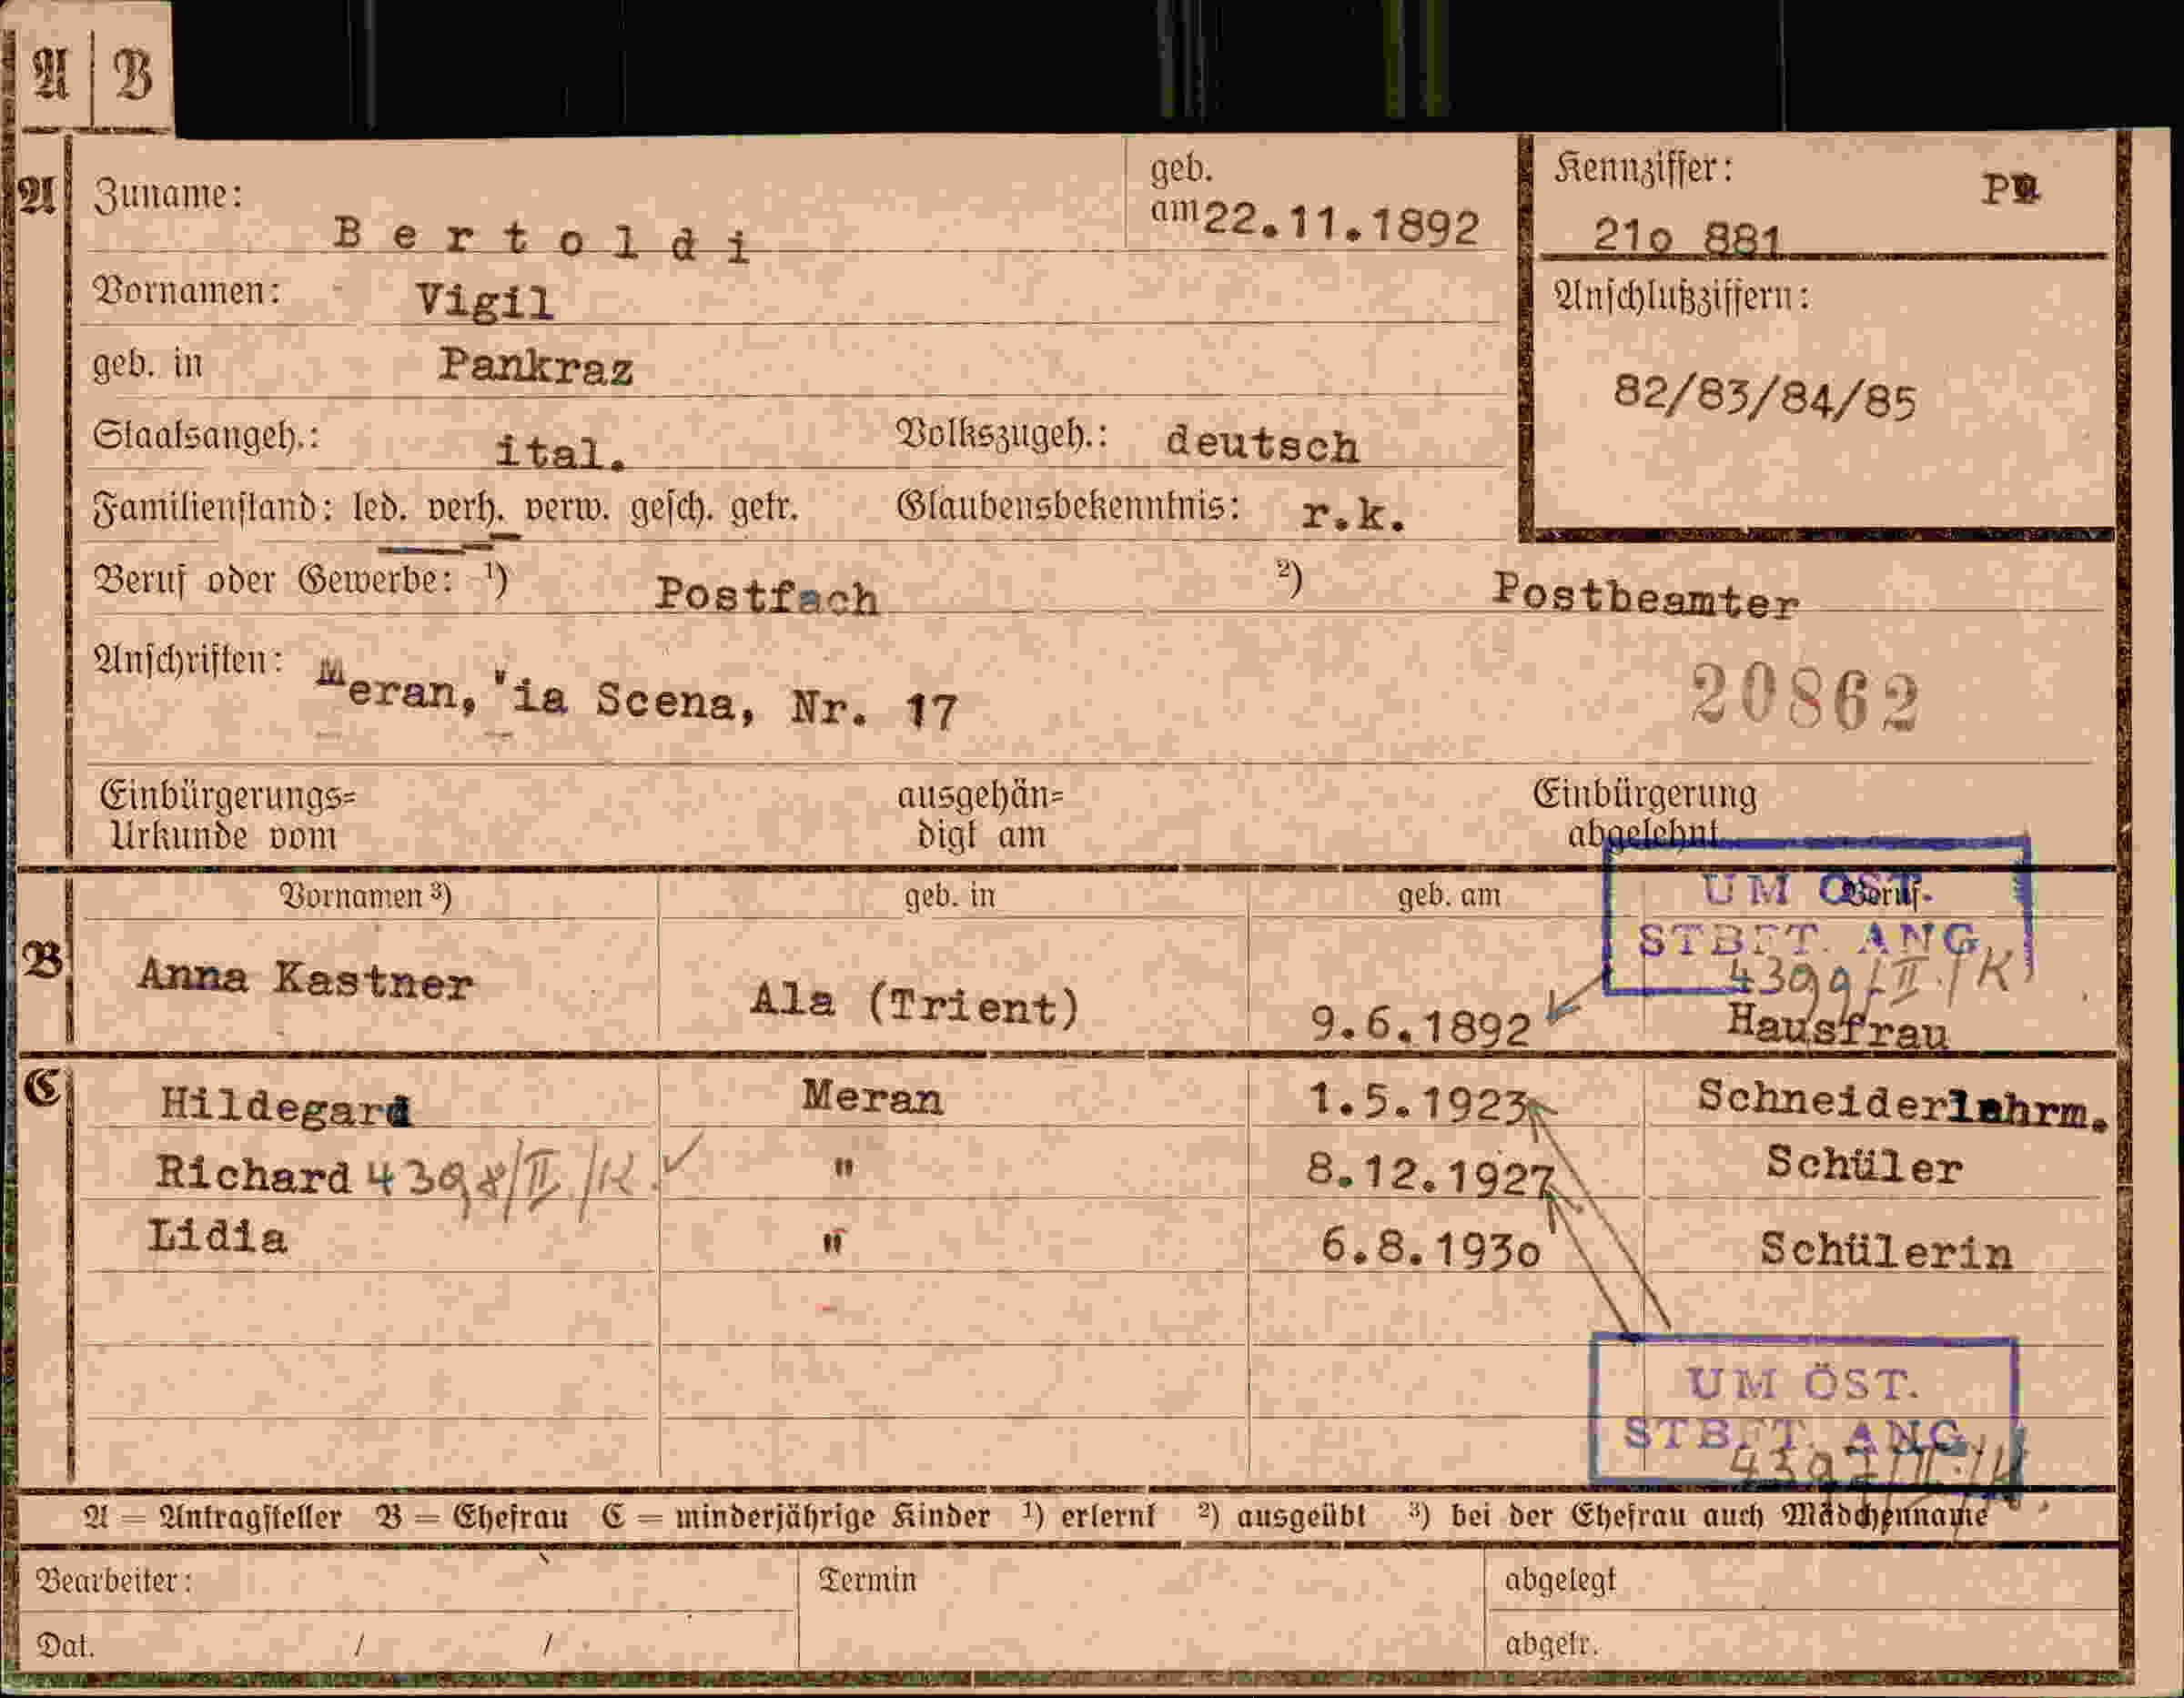 A | B
A Zuname: Bertoldi geb. am 22.11.1892 Kennziffer: 21o 881
Vornamen: Vigil Anschlußziffern:
geb. in Pankraz 82/83/84/85
Staatsangeh.: ital. Volkszugeh.: deutsch
Familienstand: led. verh. verw. gesch. getr. Glaubensbekenntnis: r.k.
Beruf oder Gewerbe: 1) Postfach 2) Postbeamter
Anschriften: Meran, Via Scena, Nr. 17 20862
Einbürgerungs= ausgehän= Einbürgerung
Urkunde vom digt am abgelehnt
Vornamen 3) geb. in geb. am Beruf
UM ÖST.
STBFT. ANG.
4399/II./K
B Anna Kastner Ala (Trient) 9.6.1892 Hausfrau
C Hildegard Meran 1.5.1923 Schneiderlehrm.
Richard 4398/II./K. " 8.12.1927 Schüler
Lidia " 6.8.193o Schülerin
UM ÖST.
STBFT. ANG.
4397/II./K.
A = Antragsteller B = Ehefrau C = minderjährige Kinder 1) erlernt 2) ausgeübt 3) bei der Ehefrau auch Mädchenname
Bearbeiter: Termin abgelegt
Dat. / / abgetr.